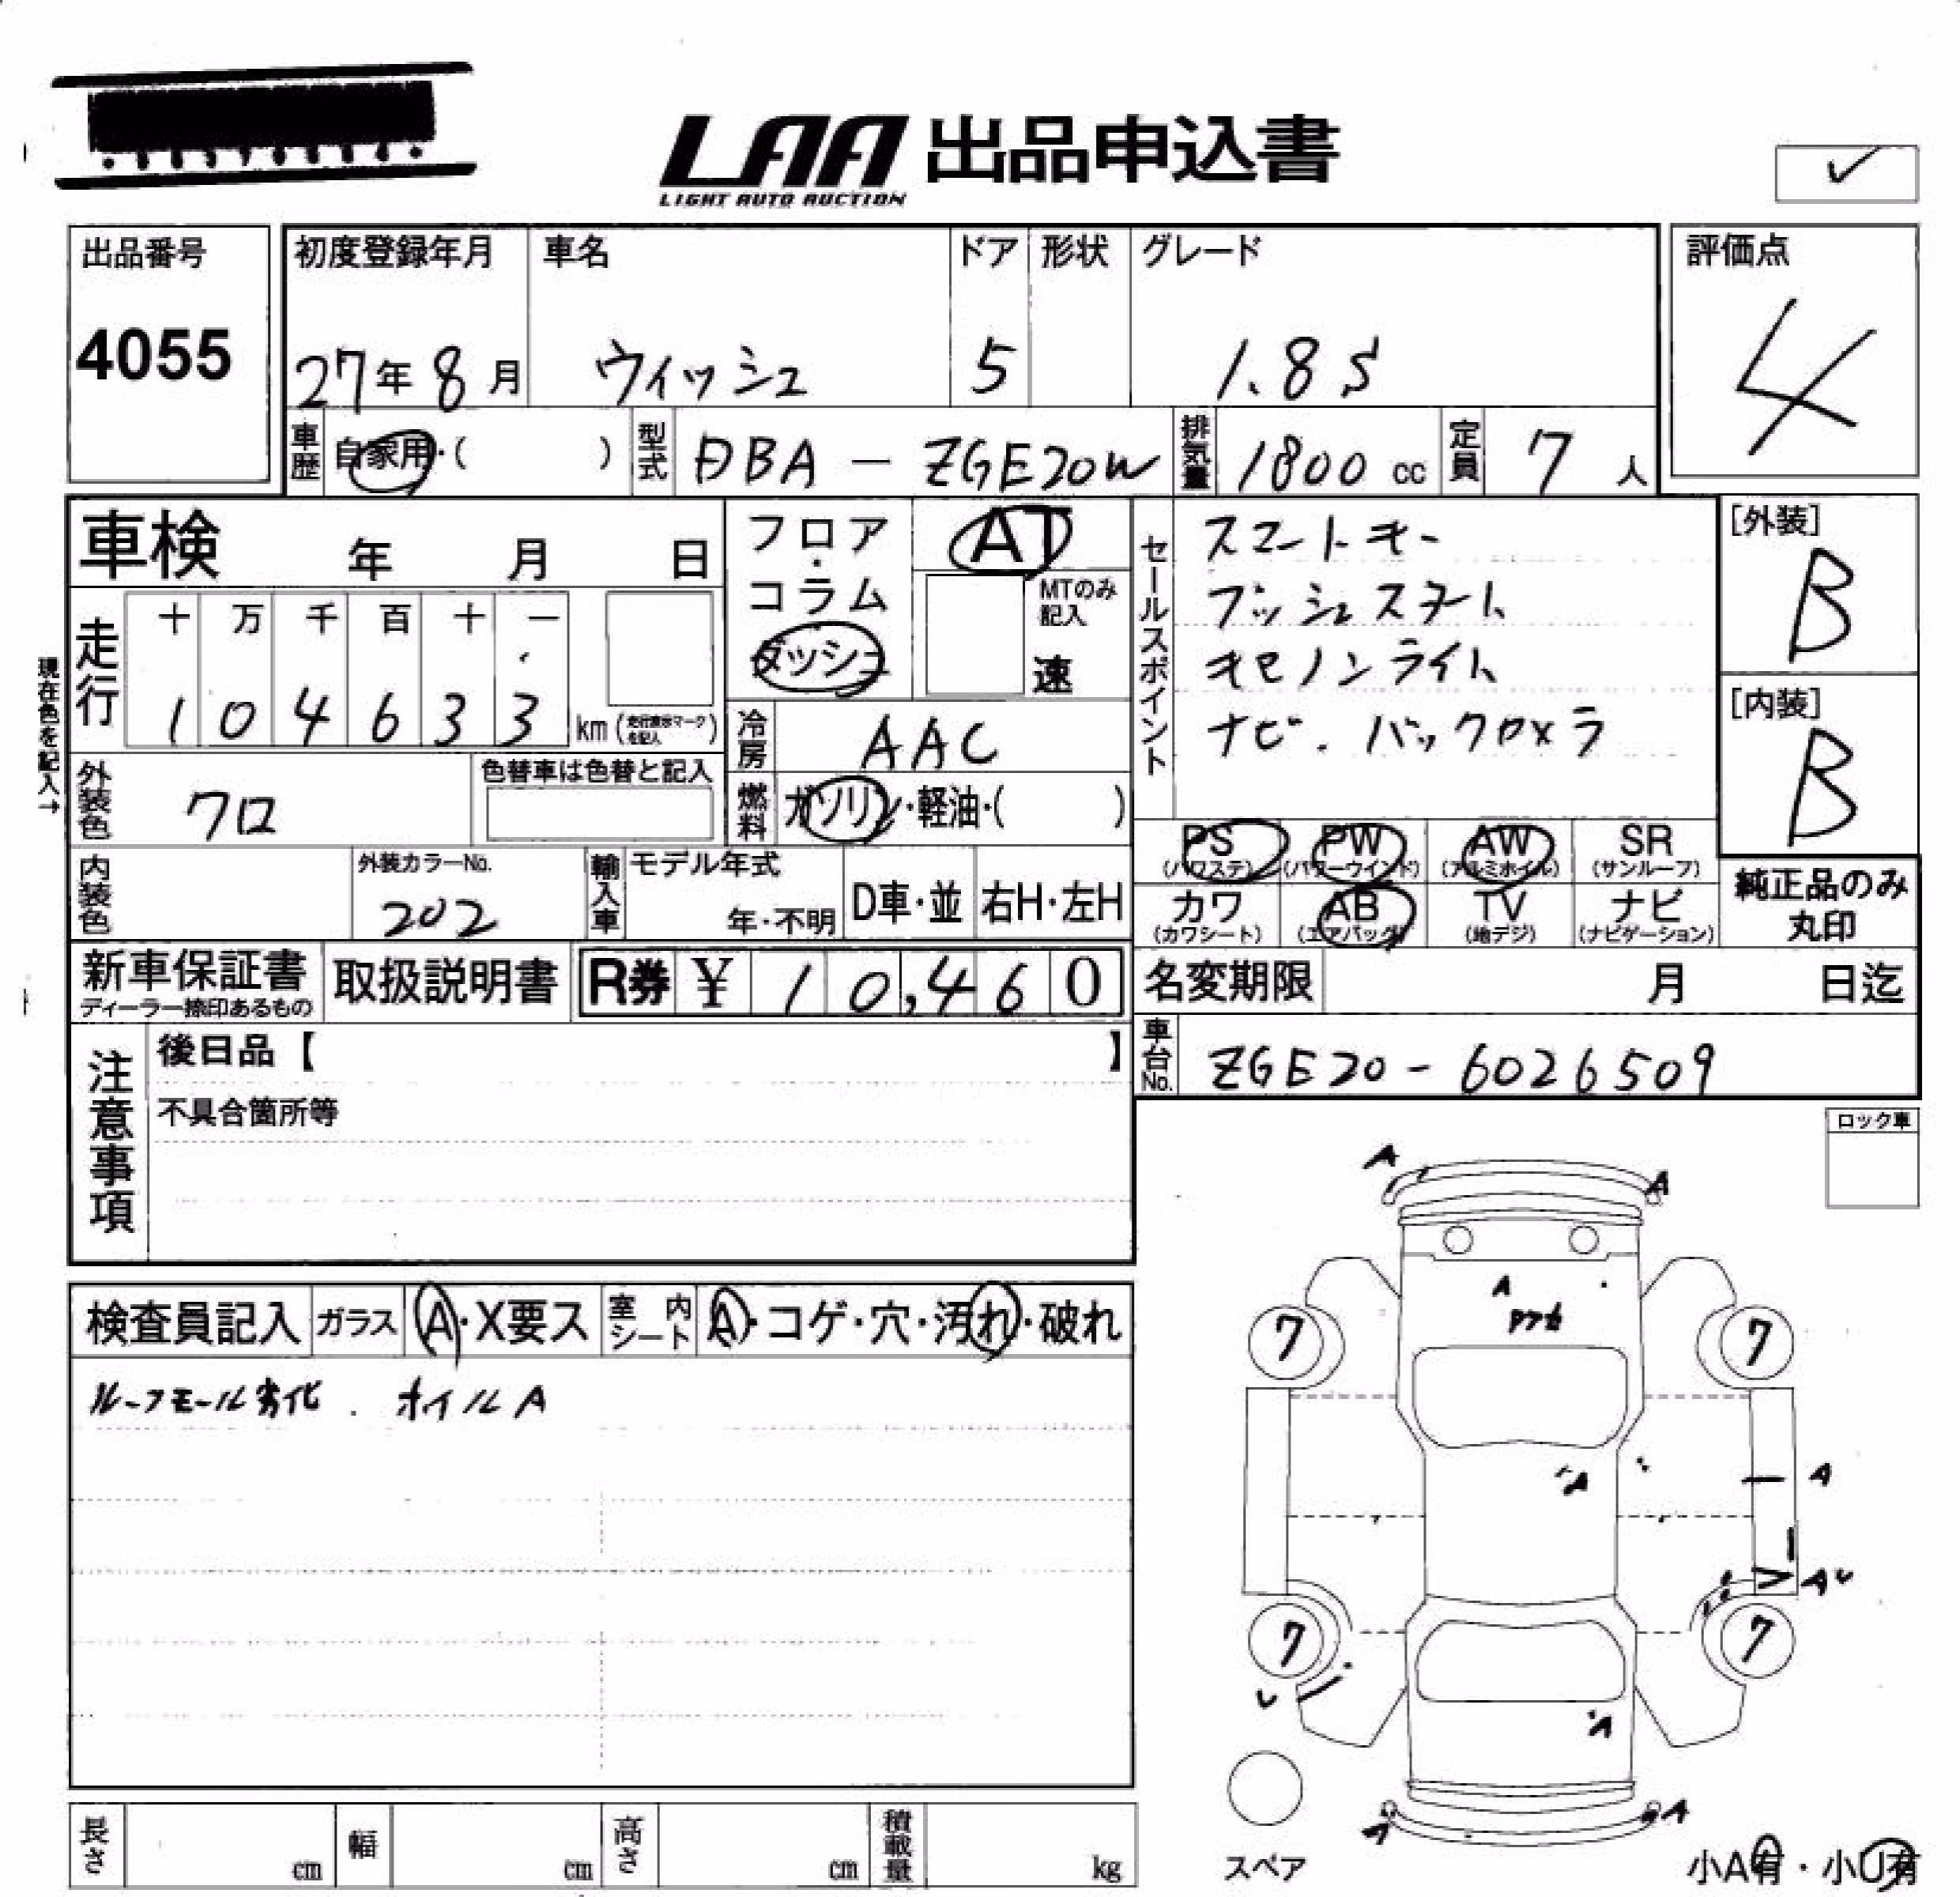 LAA 出品申込書
LIGHT AUTO AUCTION
出品番号
4055
初度登録年月 車名 ドア 形状 グレード
27年 8月 ウィッシュ 5 1.8S
評価点
4
車歴 自家用・( ) 型式 DBA - ZGE20W 排気量 1800 cc 定員 7 人
車検 年 月 日
フロア・コラム
ダッシュ
AT
MTのみ記入
速
現在色を記入→
走行 十 万 千 百 十 一
1 0 4 6 3 3 km (走行表示マークを記入)
冷房 AAC
外装色 クロ 色替車は色替と記入
燃料 ガソリン・軽油・( )
内装色 外装カラーNo. 202
輸入車 モデル年式 年・不明 D車・並 右H・左H
セールスポイント
スマートキー
プッシュスタート
キセノンライト
ナビ. バックカメラ
[外装]
B
[内装]
B
PS (パワステ) PW (パワーウインド) AW (アルミホイル) SR (サンルーフ)
カワ (カワシート) AB (エアバッグ) TV (地デジ) ナビ (ナビゲーション)
純正品のみ
丸印
新車保証書 取扱説明書 R券 ¥ 10,460
ディーラー捺印あるもの
名変期限 月 日迄
車台No. ZGE20 - 6026509
注意事項
後日品【 】
不具合箇所等
ロック車
検査員記入 ガラス A・X要ス 室内シート A・コゲ・穴・汚れ・破れ
ルーフモール劣化. ホイルA
A
A
A
7 7
A
A
A
7 7
A
A
スペア
小A有・小U有
長さ cm 幅 cm 高さ cm 積載量 kg